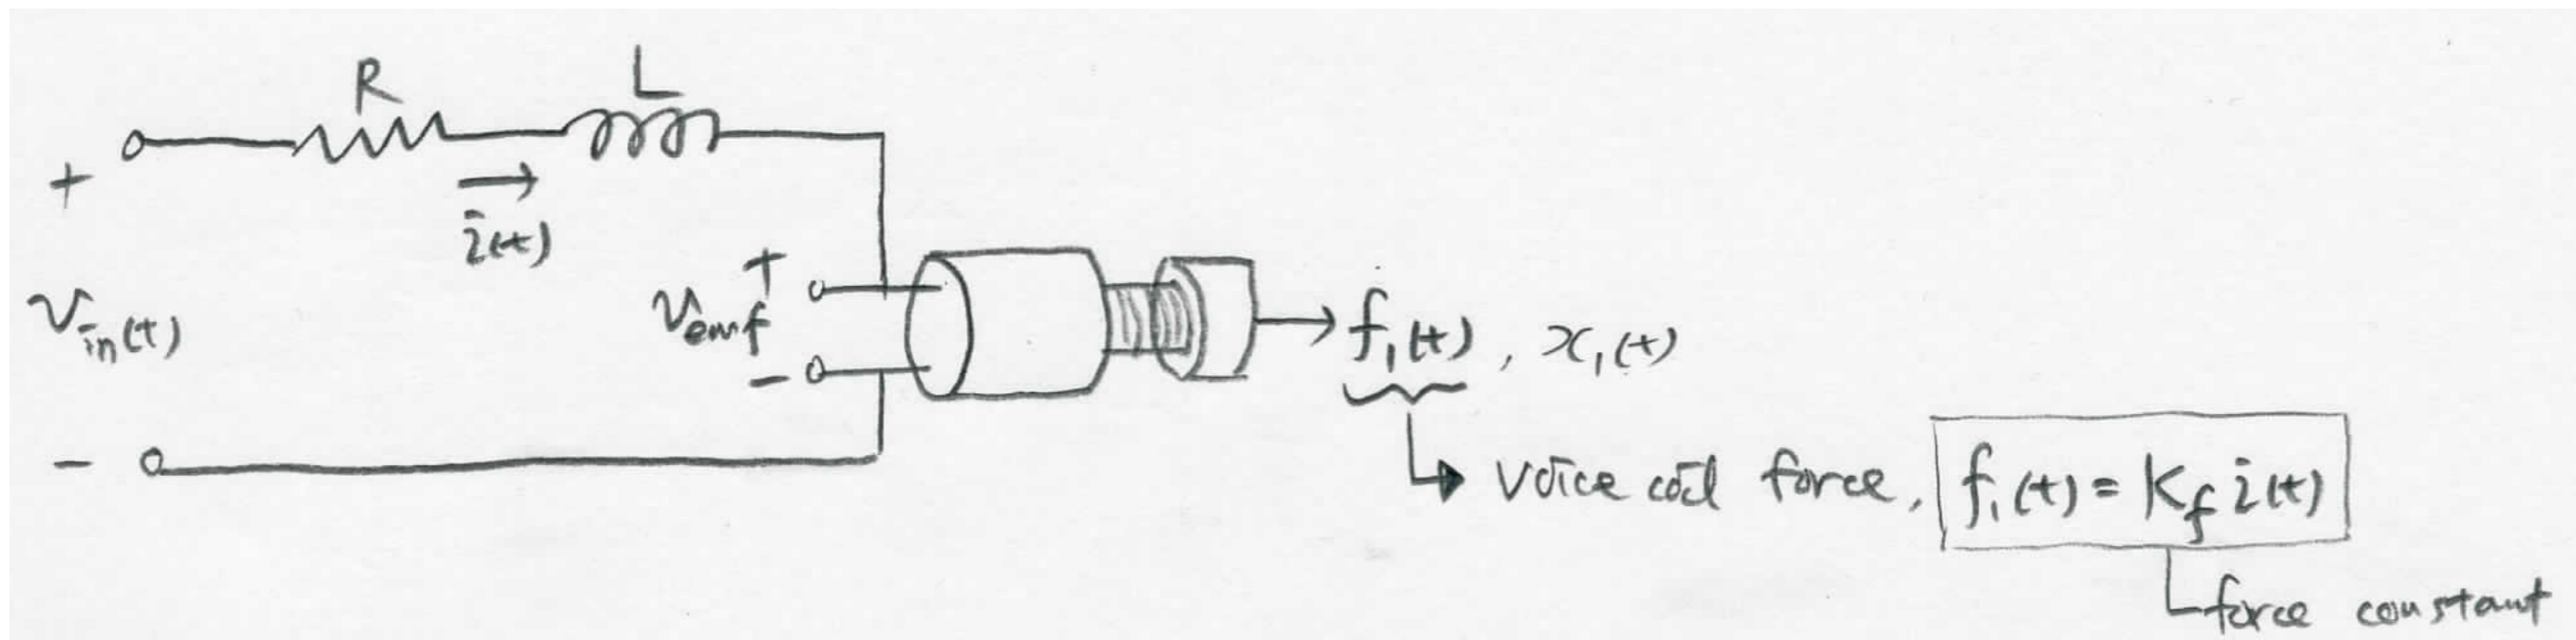 R
L
+
i(t)
V_in(t)
+
V_emf
-
f₁(t), x₁(t)
-
voice coil force, f₁(t) = K_f i(t)
force constant